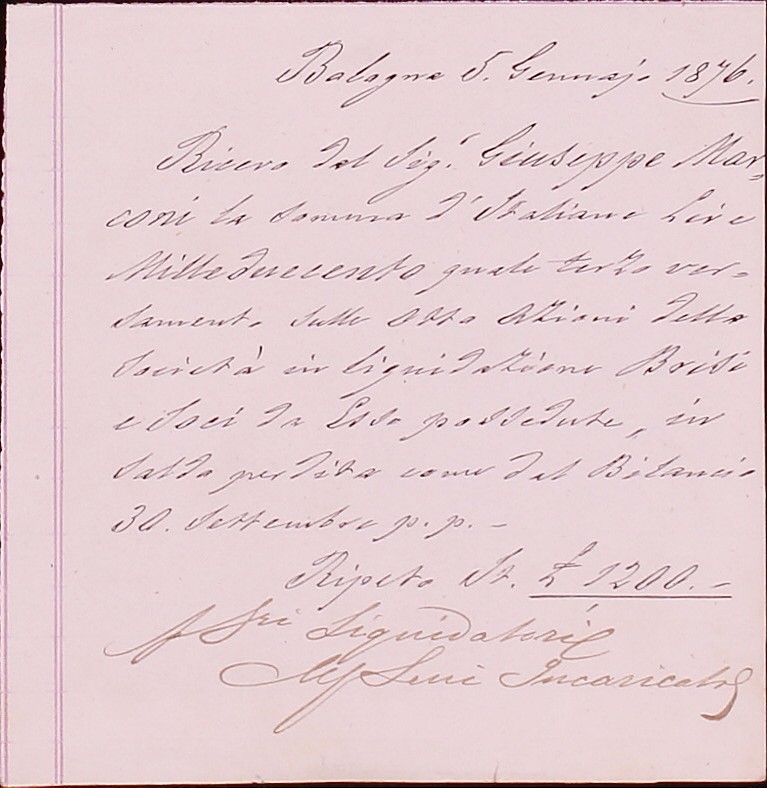 Bologna 5. Gennajo 1876.
Ricevo dal Sig.r Giuseppe Mar-
coni la somma d'Italiane Lire
Milleduecento quale terzo ver-
samento sulle otto Azioni della
Società in liquidazione Brisi
e Soci da Esso possedute, in
saldo perdita come dal Bilancio
30. Settembre p. p. -
Ripeto It. £ 1200. -
Sri Liquidatori
Incaricato